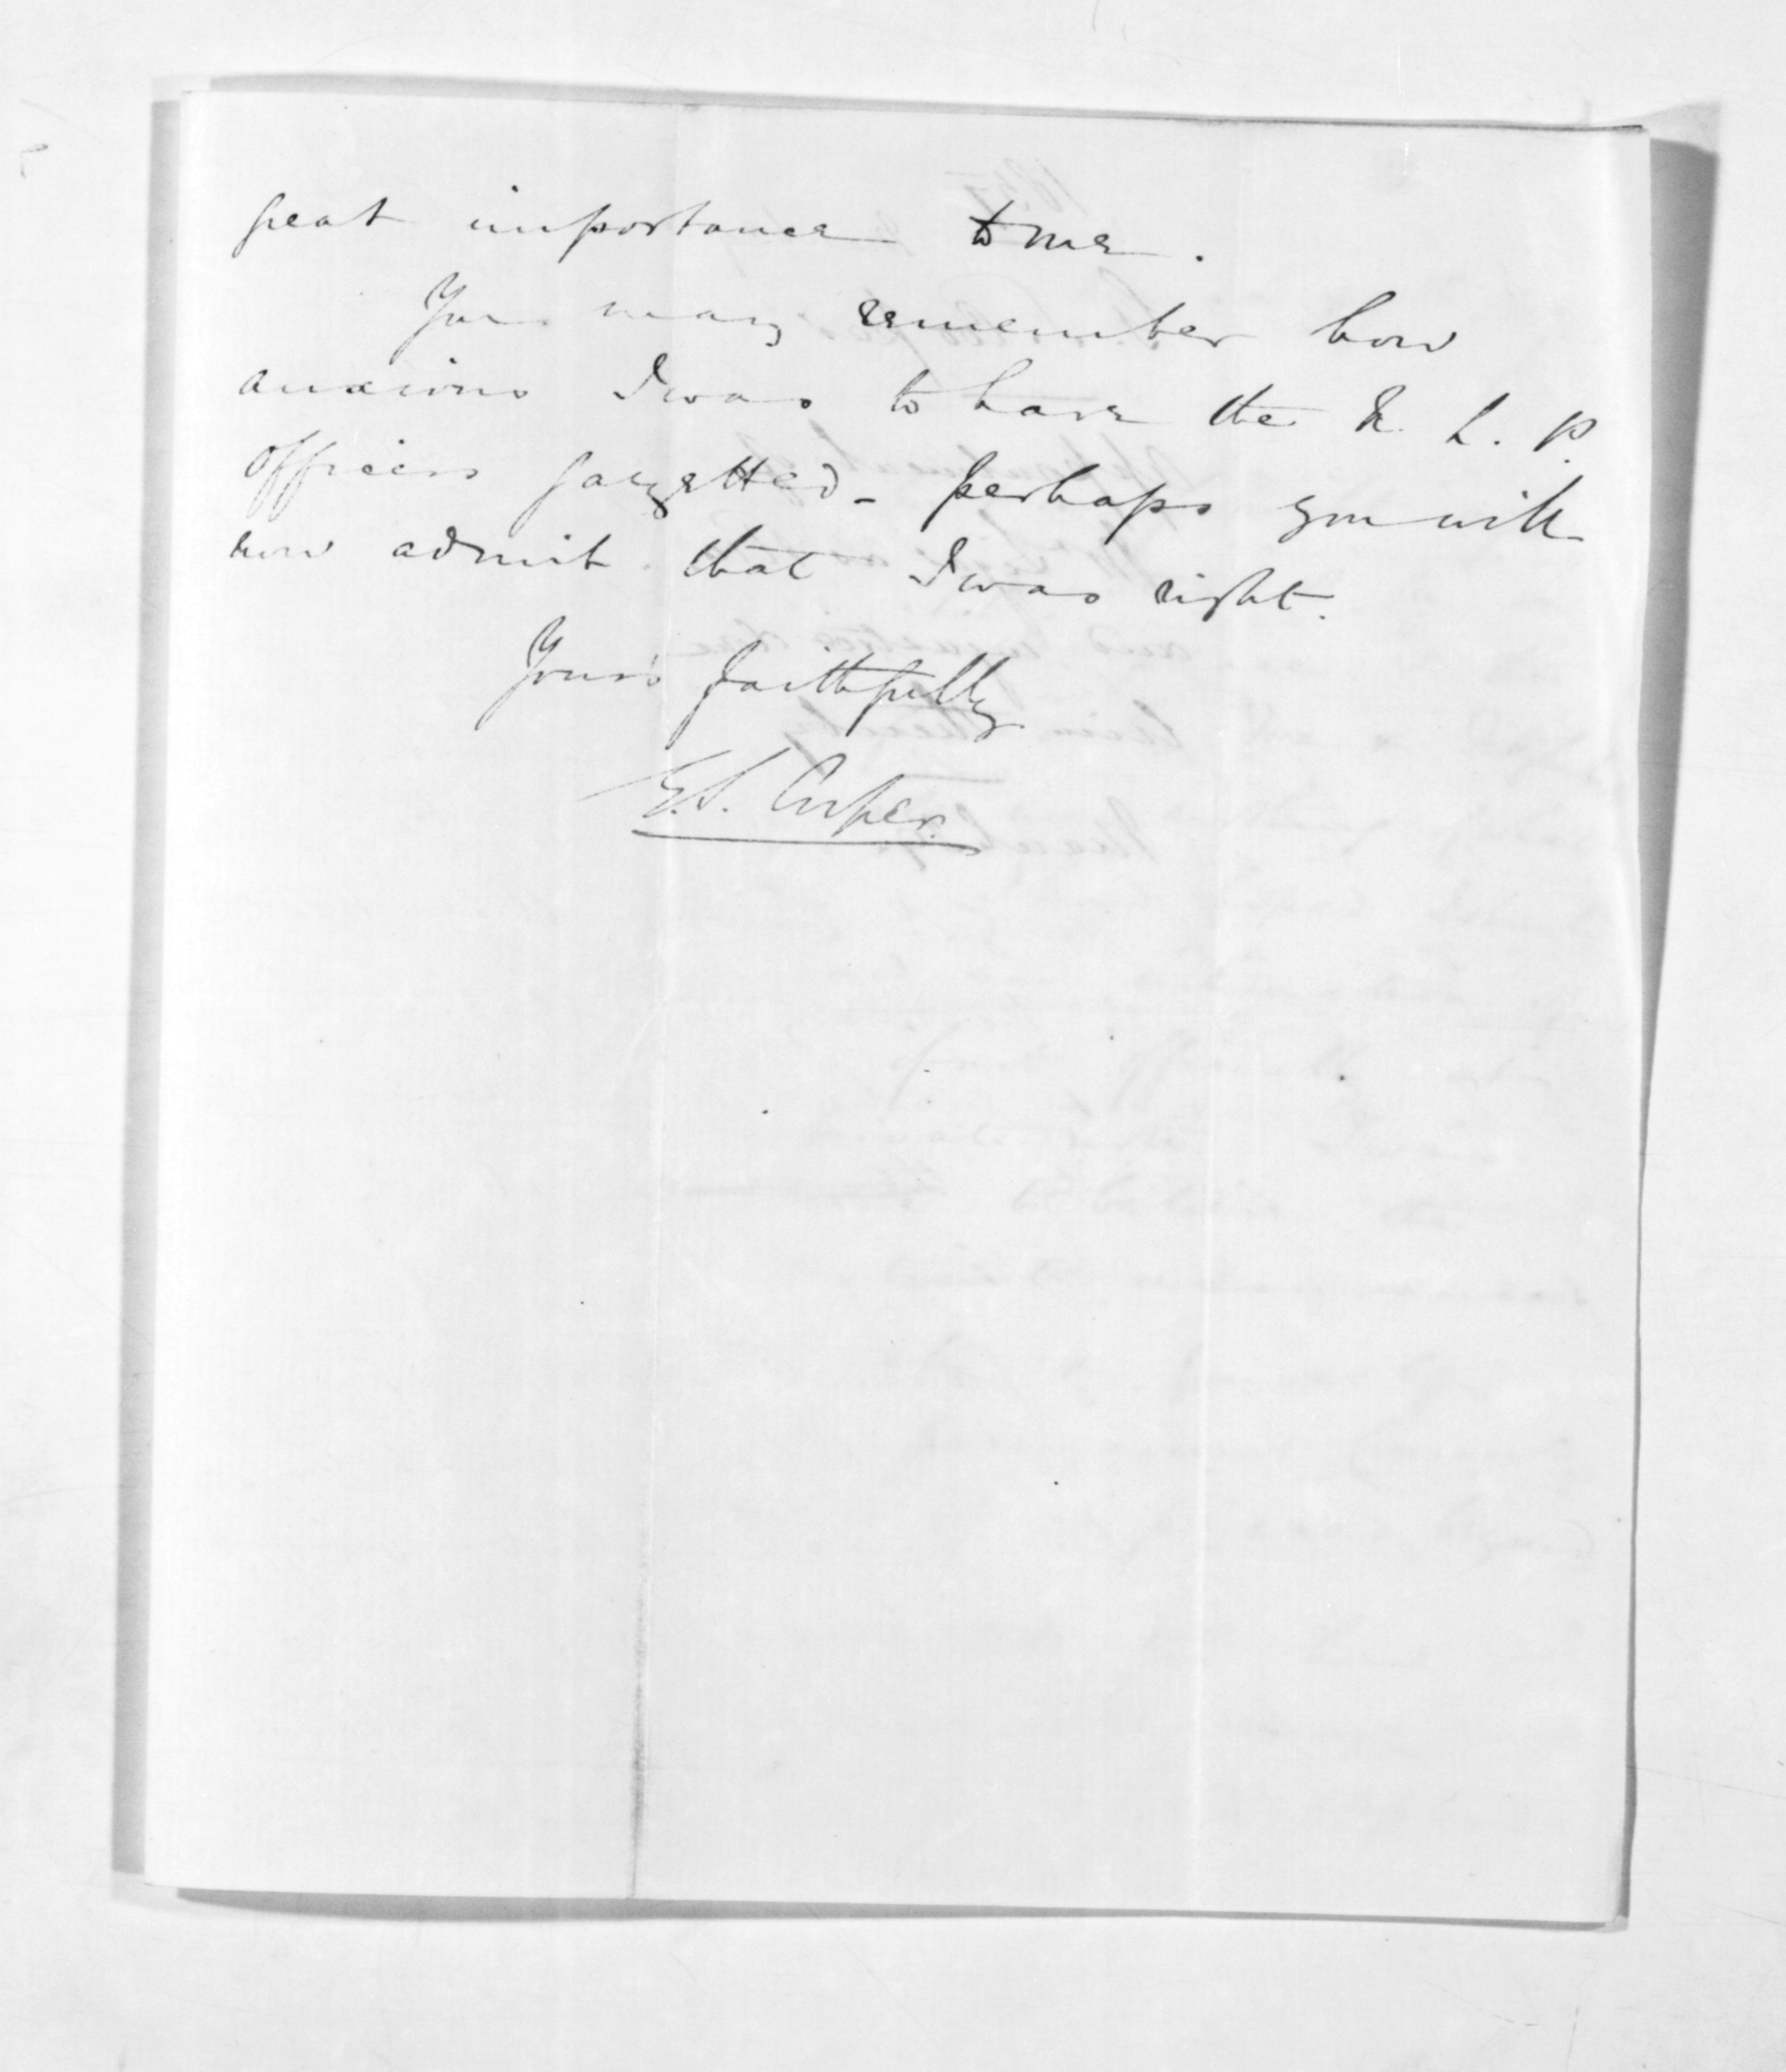 great importance to me.
You may remember how
anxious I was to have the N. L. P.
Officers gazetted - perhaps you will
now admit that I was right.
Yours faithfully
G.S. Cooper.